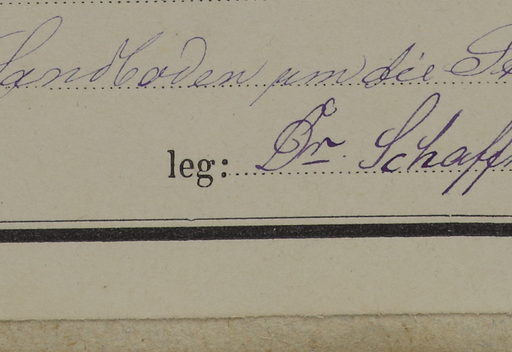 Sandboden um die St
leg: Dr. Schaff